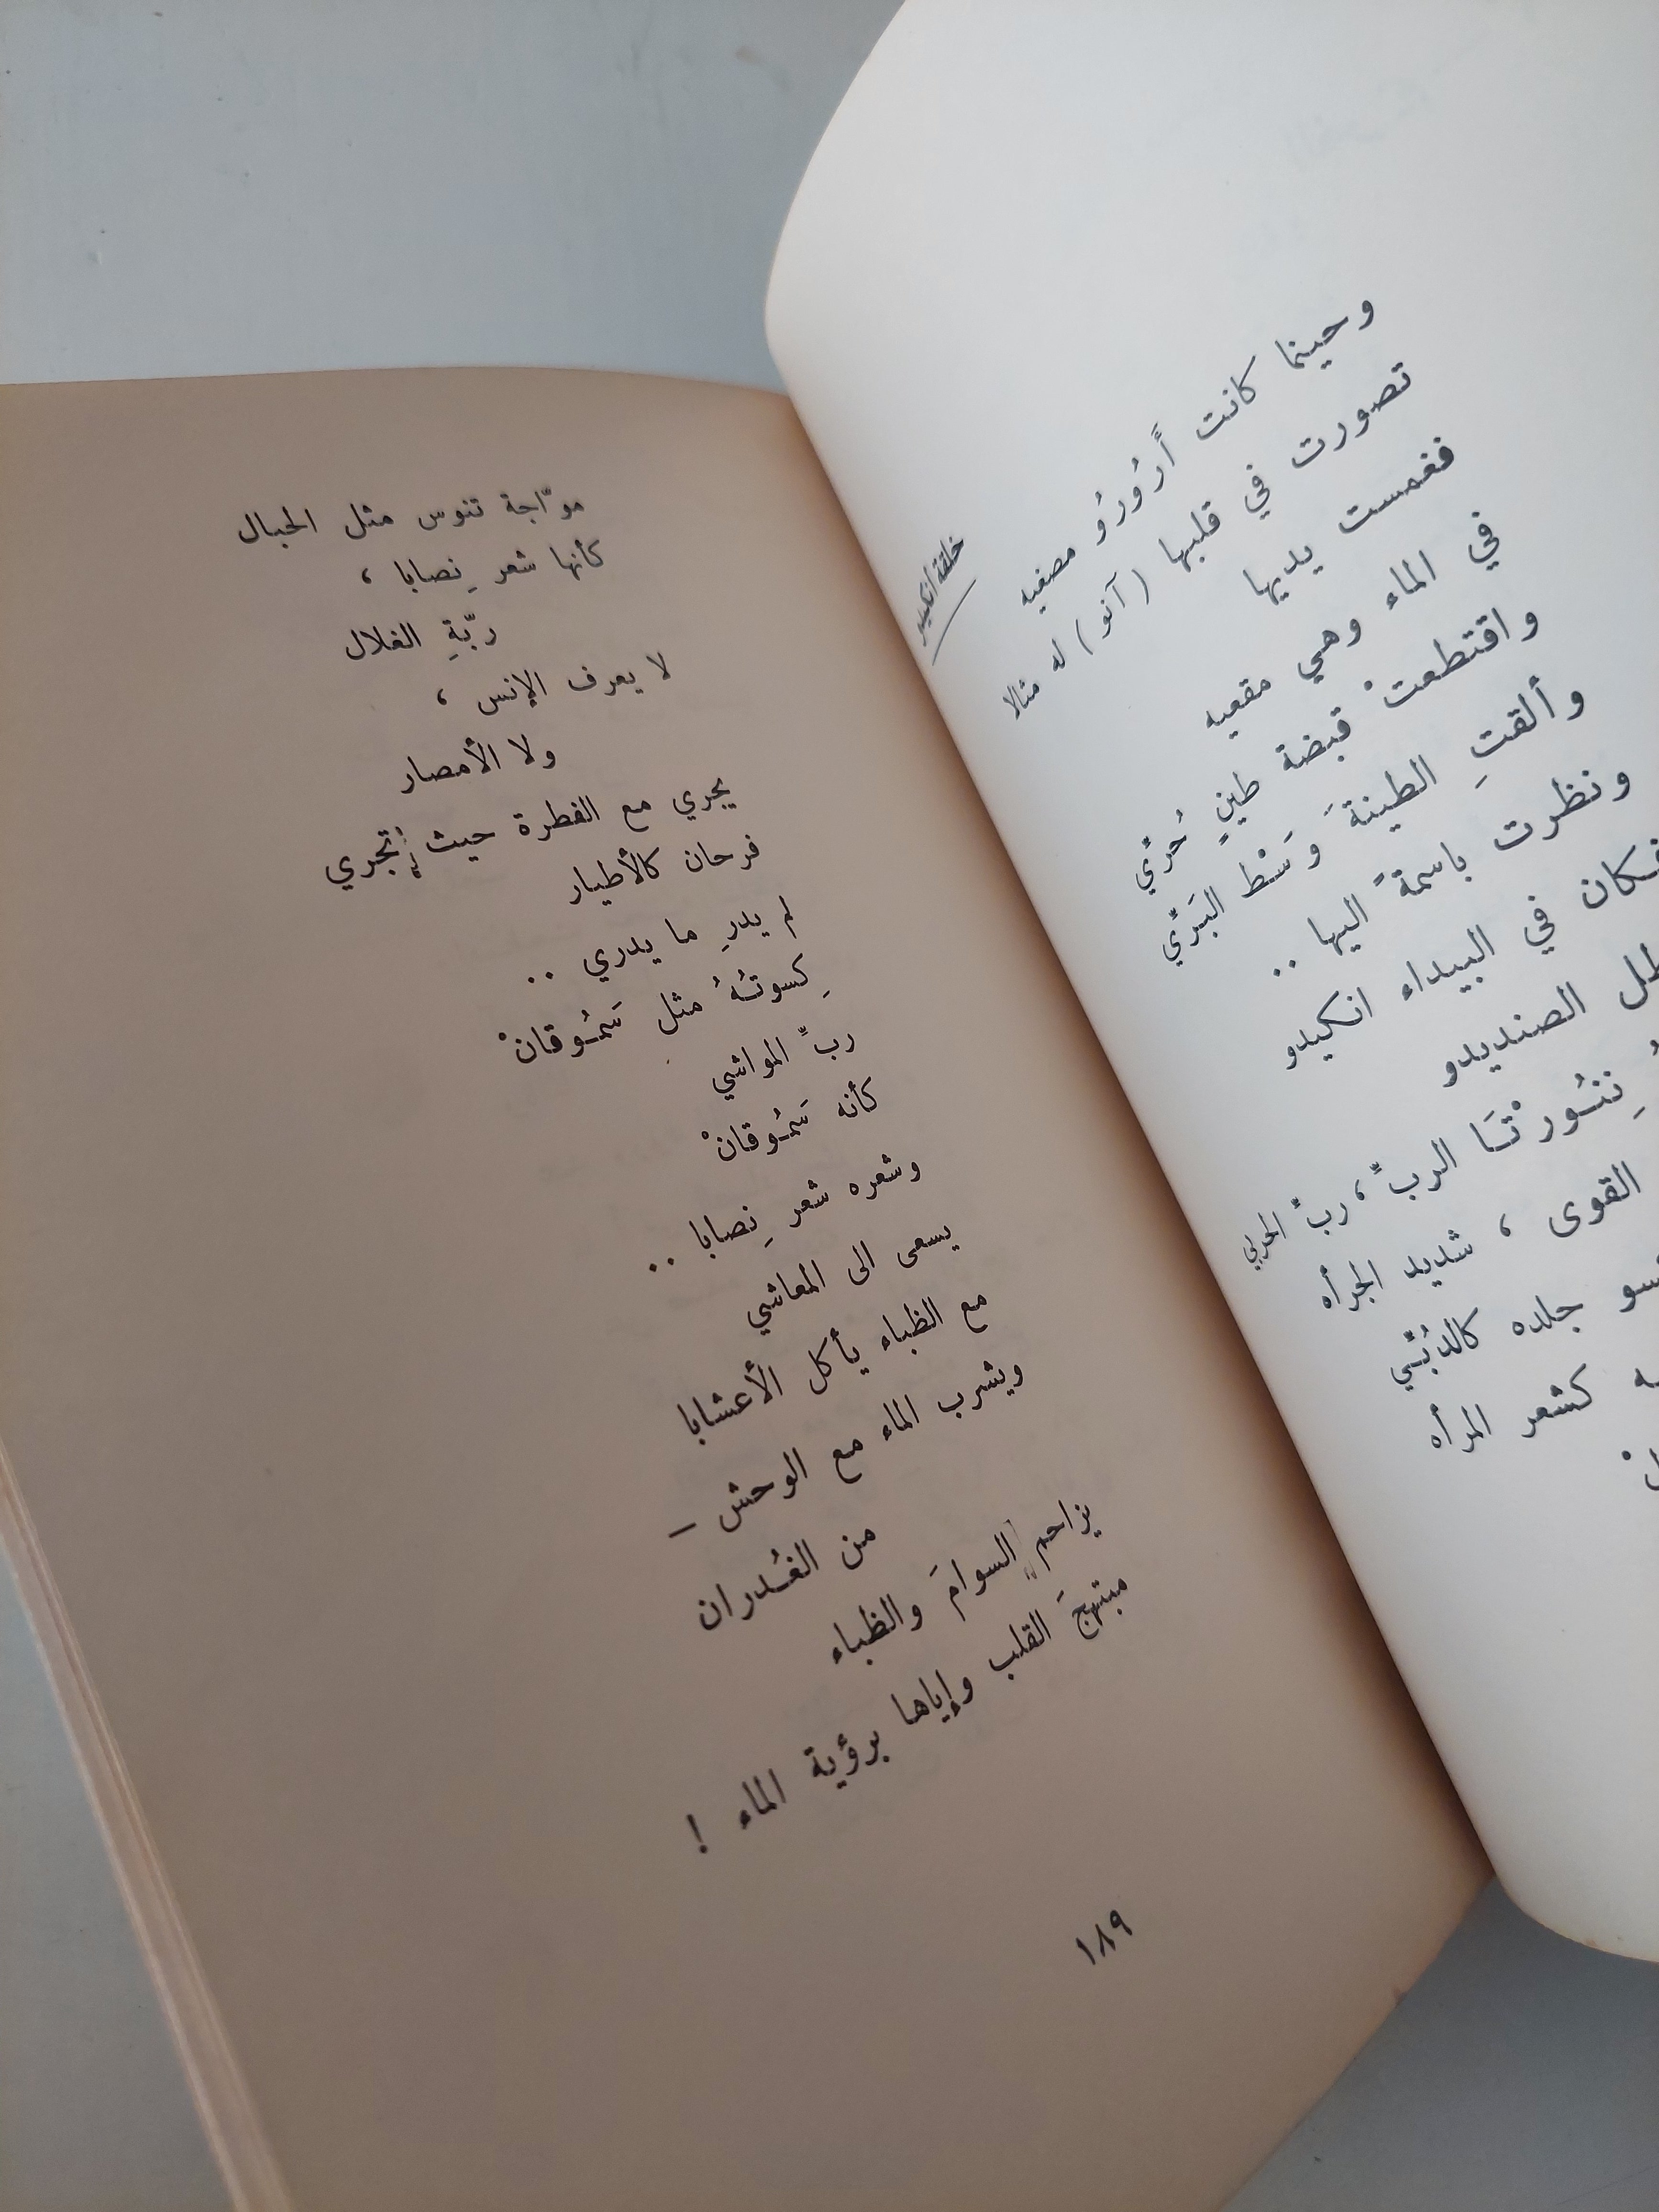 وحينما كانت أرُورُو مصغيه
تصورت في قلبها (آنو) له مثالا
فغمست يديها
في الماء وهي مقعيه
واقتطعتْ قبضة طينٍ حُرّي
وألقتِ الطينةَ وَسْط البَرّي
ونظرت باسمةً اليها ..
فكان في البيداء انكيدو
الصنديدو
نِنُورْتَا الربّ، ربّ الحربِ
القوى ، شديد الجرأه
جلده كالدُبّي
كشعر المرأه
خلقة انكيدو
موّاجة تنوس مثل الحبال
كأنها شعر نِصابا ،
ربّةِ الغلال
لا يعرف الإنس ،
ولا الأمصار
يجري مع الفطرة حيث تجري
فرحان كالأطيار
لم يدرِ ما يدري ..
كِسوتُهُ مثل سَمُوقانْ
ربّ المواشي
كأنه سَمُوقانْ
وشعره شعر نِصابا ..
يسعى الى المعاشي
مع الظباء يأكل الأعشابا
ويشرب الماء مع الوحش –
من الغُدران
يزاحم السوامَ والظباء
مبتهجَ القلب وإياها برؤية الماء !
١٨٩